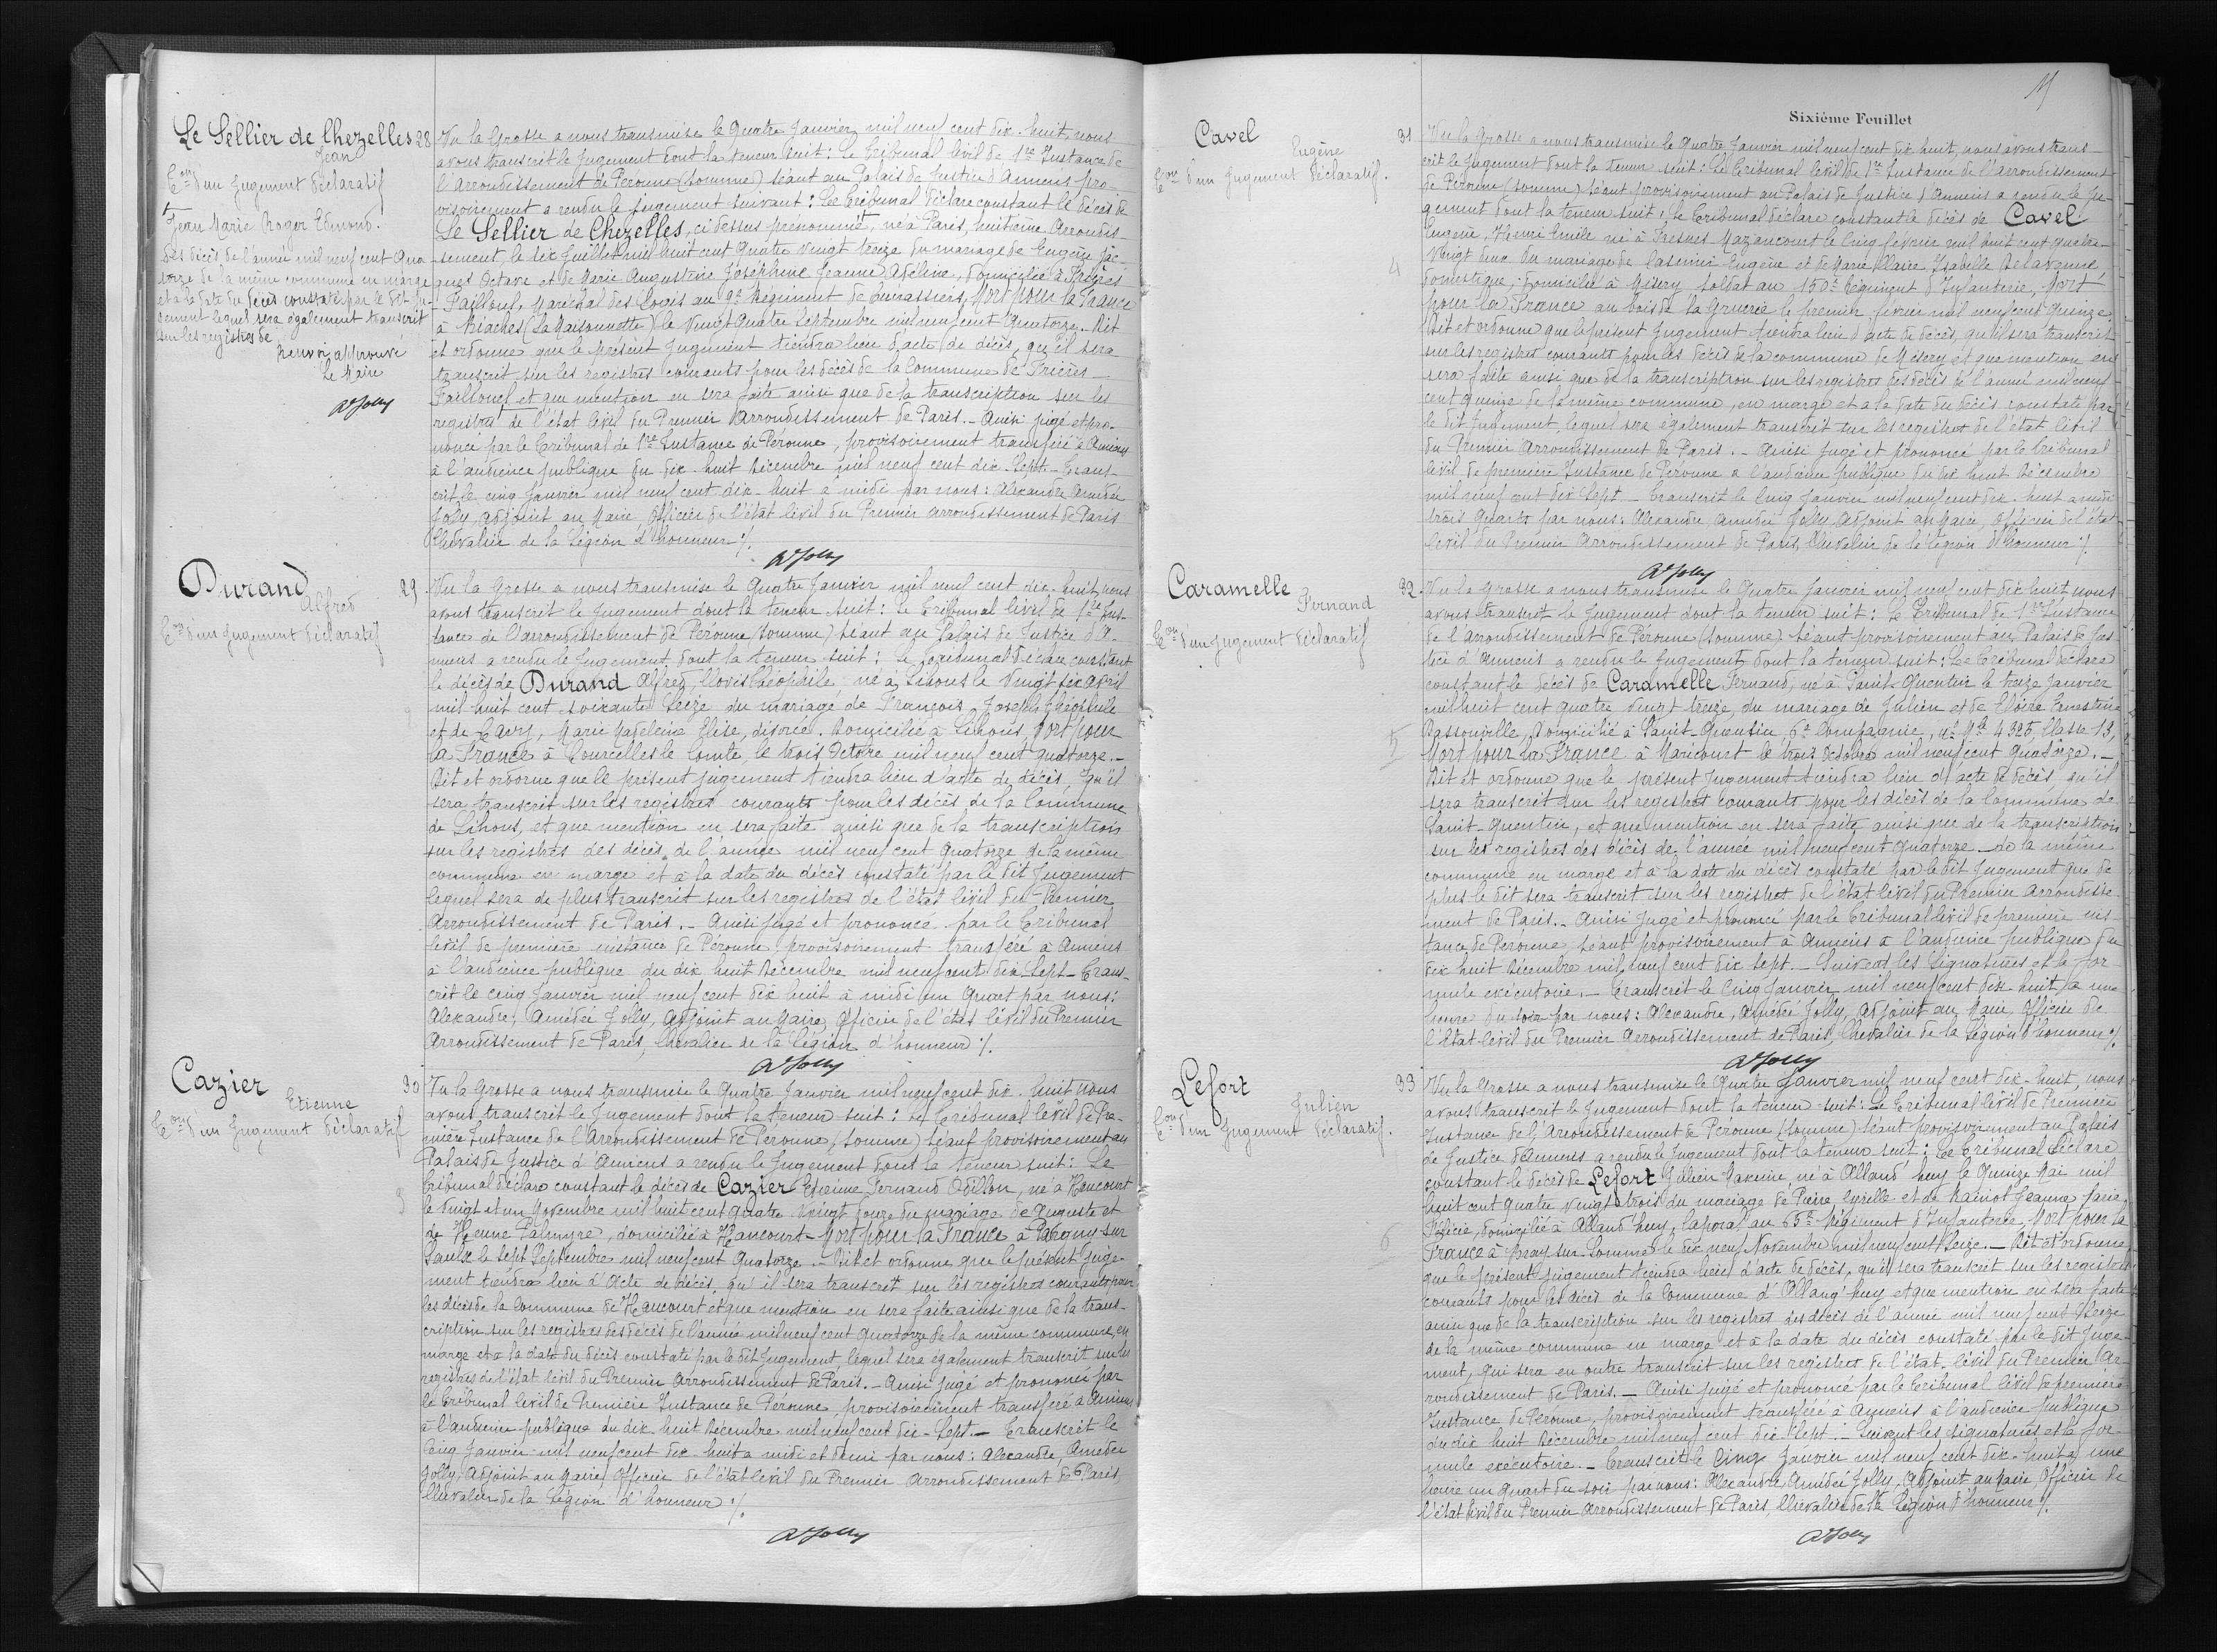 Le Sellier de Chezelles 28
Jean
Ton d'un Jugement Déclaratif
Jean Marie Roger Edmond.
des décès de l'année mil neuf cent qua
torze de la même commune en marge
et à la date du décès constaté par le dit Ju
gement lequel sera également transcrit
sur les registres de
Renvoi approuvé
Le Maire
AJolly
Vu la Grosse a nous transmise le Quatre Janvier mil neuf cent dix-huit, nous
avons transcrit le Jugement dont la teneur suit: Le Tribunal Civil de 1re Instance de
l'arrondissement de Péronne (Somme) séant au Palais de Justice d'Amiens pro-
visoirement a rendu le jugement suivant: Le Tribunal déclare constant le décès de
Le Sellier de Chezelles, ci dessus prénommé, né à Paris, huitième Arrondis-
sement, le dix Juillet mil huit cent Quatre vingt treize du mariage de Eugène Jac-
ques Octave et de Marie Augustine Joséphine Jeanne Adeline, domicilié à Frières
Faillouel, Maréchal des Logis au 9e Régiment de Cuirassiers, Mort pour la France
à Biaches (La Maisonnette) le Vingt Quatre Septembre mil neuf cent Quatorze. Dit
et ordonne que le présent Jugement tiendra lieu d'acte de décès, qu'il sera
transcrit sur les registres courants pour les décès de la Commune de Frières-
Faillouel et que mention en sera faite ainsi que de la transcription sur les
registres de l'état Civil du Premier Arrondissement de Paris. - Ainsi jugé et pro-
noncé par le Tribunal de 1re Instance de Péronne, provisoirement transféré à Amiens
à l'audience publique du dix-huit Décembre mil neuf cent dix-Sept. - Trans-
crit le cinq Janvier mil neuf cent dix-huit à midi par nous: Alexandre Amédée
Jolly, adjoint au Maire, Officier de l'état Civil du Premier arrondissement de Paris
Chevalier de la Légion d'honneur ./.
AJolly
Durand 29
Alfred
Ton d'un Jugement Déclaratif
Vu la Grosse a nous transmise le Quatre Janvier mil neuf cent dix-huit, nous
avons transcrit le Jugement dont la teneur suit: Le Tribunal Civil de 1re Ins-
tance de l'arrondissement de Péronne (Somme) séant au Palais de Justice d'A-
miens a rendu le Jugement, dont la teneur suit: Le Tribunal déclare constant
le décès de Durand Alfred, Clovis Théophile, né à Lihons le Vingt six avril
mil huit cent soixante Seize du mariage de François Joseph Théophile
et de Cavry, Marie Madeleine Elise, divorcé. Domicilié à Lihons, Mort pour
la France à Courcelles le Comte, le trois Octobre mil neuf cent quatorze.-
Dit et ordonne que le présent jugement tiendra lieu d'acte de décès, qu'il
sera transcrit sur les registres courants pour les décès de la Commune
de Lihons, et que mention en sera faite ainsi que de la transcription
sur les registres des décès de l'année mil neuf cent Quatorze de la même
commune en marge et à la date du décès constaté par le dit Jugement
lequel sera de plus transcrit sur les registres de l'état Civil du Premier
Arrondissement de Paris. - Ainsi jugé et prononcé par le Tribunal
Civil de première instance de Péronne provisoirement transféré à Amiens
à l'audience publique du dix huit Décembre mil neuf cent dix Sept - Trans-
crit le cinq Janvier mil neuf cent dix huit à midi un Quart par nous:
Alexandre, Amédée Jolly, adjoint au Maire, Officier de l'état Civil du Premier
Arrondissement de Paris, Chevalier de la Légion d'honneur ./.
AJolly
Cazier 30
Etienne
Ton d'un Jugement Déclaratif
Vu la Grosse a nous transmise le Quatre Janvier mil neuf cent dix-huit nous
avons transcrit le Jugement dont la teneur suit: Le Tribunal Civil de Pre-
mière Instance de l'Arrondissement de Péronne, (Somme) séant provisoirement au
Palais de Justice d'Amiens a rendu le Jugement dont la teneur suit: Le
Tribunal déclare constant le décès de Cazier Etienne Fernand Odillon, né à Hancourt
le vingt et un Novembre mil huit cent quatre Vingt douze du mariage de Auguste et
de Henne Palmyre, domicilié à Hancourt - Mort pour la France à Pargny-sur
Saulx le Sept Septembre mil neuf cent Quatorze. - Dit et ordonne que le présent Juge-
ment tiendra lieu d'Acte de décès, qu'il sera transcrit sur les registres courants pour
les décès de la Commune de Hancourt et que mention en sera faite ainsi que de la trans-
cription sur les registres des décès de l'année mil neuf cent quatorze de la même commune, en
marge et à la date du décès constaté par le dit Jugement, lequel sera également transcrit sur les
registres de l'état Civil du Premier Arrondissement de Paris. - Ainsi jugé et prononcé par
le Tribunal Civil de Première Instance de Péronne, provisoirement transféré à Amiens
à l'audience publique du dix huit Décembre mil neuf cent dix-Sept. - Transcrit le
Cinq Janvier mil neuf cent dix-huit à midi et demi par nous: Alexandre, Amédée
Jolly, adjoint au Maire, Officier de l'état Civil du Premier Arrondissement de Paris
Chevalier de la Légion d'honneur ./.
AJolly
11
Sixième Feuillet
Cavel 31
Eugène
Ton d'un Jugement Déclaratif.
4
Vu la Grosse a nous transmise le Quatre Janvier mil neuf cent dix huit, nous avons trans-
crit le Jugement dont la teneur suit: Le Tribunal Civil de 1re Instance de l'arrondissement
de Péronne (Somme) séant provisoirement au Palais de Justice d'Amiens a rendu le Ju-
gement dont la teneur suit: Le Tribunal déclare constant le décès de Cavel
Eugène, Henri Emile né à Fresnes Mazancourt le Cinq février mil huit cent quatre-
vingt deux du mariage de Casimir Eugène et de Marie Claire Isabelle Delavenne,
domestique, domicilié à Misery, Soldat au 150e Régiment d'Infanterie, Mort
pour la France au bois de la Gruerie le premier février mil neuf cent Quinze.
Dit et ordonne que le présent Jugement tiendra lieu d'acte de décès, qu'il sera transcrit
sur les registres courants pour les décès de la commune de Misery et que mention en
sera faite ainsi que de la transcription sur les registres des décès de l'année mil neuf
cent quinze de la même commune, en marge et à la date du décès constaté par
le dit Jugement, lequel sera également transcrit sur les registres de l'état Civil
du Premier Arrondissement de Paris. - Ainsi jugé et prononcé par le Tribunal
Civil de première Instance de Péronne à l'audience publique du dix huit Décembre
mil neuf cent dix Sept. - Transcrit le Cinq Janvier mil neuf cent dix-huit à midi
trois quarts par nous: Alexandre Amédée Jolly Adjoint au Maire, Officier de l'état
Civil du Premier Arrondissement de Paris, Chevalier de la Légion d'honneur ./.
AJolly
Caramelle 32
Fernand
Ton d'un Jugement Déclaratif
5
Vu la grosse a nous transmise le Quatre Janvier mil neuf cent dix huit nous
avons transcrit le Jugement dont la teneur suit: Le Tribunal de 1re Instance
de l'arrondissement de Péronne (Somme) séant provisoirement au Palais de Jus-
tice d'Amiens a rendu le Jugement dont la teneur suit: Le Tribunal déclare
constant le décès de Caramelle Fernand, né à Saint-Quentin le treize Janvier
mil huit cent quatre vingt treize, du mariage de Julien et de Elvire Ernestine
domicilié à Saint-Quentin 6e Compagnie, Nº Mle 4325, Classe 13,
Mort pour la France à Maricourt le trois Octobre mil neuf cent Quatorze. -
Dit et ordonne que le présent Jugement tiendra lieu d'acte de décès, qu'il
sera transcrit sur les registres courants pour les décès de la Commune de
Saint-Quentin, et que mention en sera faite ainsi que de la transcription
sur les registres des décès de l'année mil neuf cent quatorze de la même
commune en marge et à la date du décès constaté par le dit Jugement que de
plus le dit sera transcrit sur les registres de l'état Civil du Premier Arrondisse-
ment de Paris. - Ainsi Jugé et prononcé par le Tribunal Civil de première ins-
tance de Péronne, séant provisoirement à Amiens à l'audience publique du
dix huit Décembre mil neuf cent dix sept. - Suivent les Signatures et la for-
mule exécutoire. - Transcrit le Cinq Janvier mil neuf cent dix-huit à une
heure du soir par nous: Alexandre, Amédée Jolly, Adjoint au Maire, Officier de
l'état Civil du Premier Arrondissement de Paris, Chevalier de la Légion d'honneur ./.
AJolly
Lefort 33
Julien
Ton d'un Jugement Déclaratif.
6
Vu la Grosse a nous transmise le Quatre Janvier mil neuf cent dix-huit, nous
avons transcrit le Jugement dont la teneur suit: Le Tribunal Civil de Première
Instance de l'Arrondissement de Péronne (Somme) séant provisoirement au Palais
de Justice d'Amiens a rendu le Jugement dont la teneur suit: Le Tribunal Déclare
constant le décès de Lefort Julien Maxime, né à Alland'huy le Quinze Mai mil
huit cent Quatre Vingt trois du mariage de Pierre et de Hainot Jeanne Marie
Félicie, domicilié à Alland'huy, Caporal au 65e Régiment d'Infanterie, Mort pour la
France à Bray-sur-Somme le dix neuf Novembre mil neuf cent Seize. - Dit et ordonne
que le présent jugement tiendra lieu d'acte de décès, qu'il sera transcrit sur les registres
courants pour les décès de la Commune d'Alland'huy et que mention en sera faite
ainsi que de la transcription sur les registres des décès de l'année mil neuf cent Seize
de la même commune en marge et à la date du décès constaté par le dit Juge-
ment, qui sera en outre transcrit sur les registres de l'état Civil du Premier Ar-
rondissement de Paris. - Ainsi jugé et prononcé par le Tribunal Civil de première
Instance de Péronne, provisoirement transféré à Amiens à l'audience publique
du dix huit Décembre mil neuf cent dix Sept. - Suivent les signatures et la for-
mule exécutoire. - Transcrit le Cinq Janvier mil neuf cent dix-huit à une
heure un quart du soir par nous: Alexandre Amédée Jolly, Adjoint au Maire Officier de
l'état Civil du Premier Arrondissement de Paris, Chevalier de la Légion d'honneur ./.
AJolly